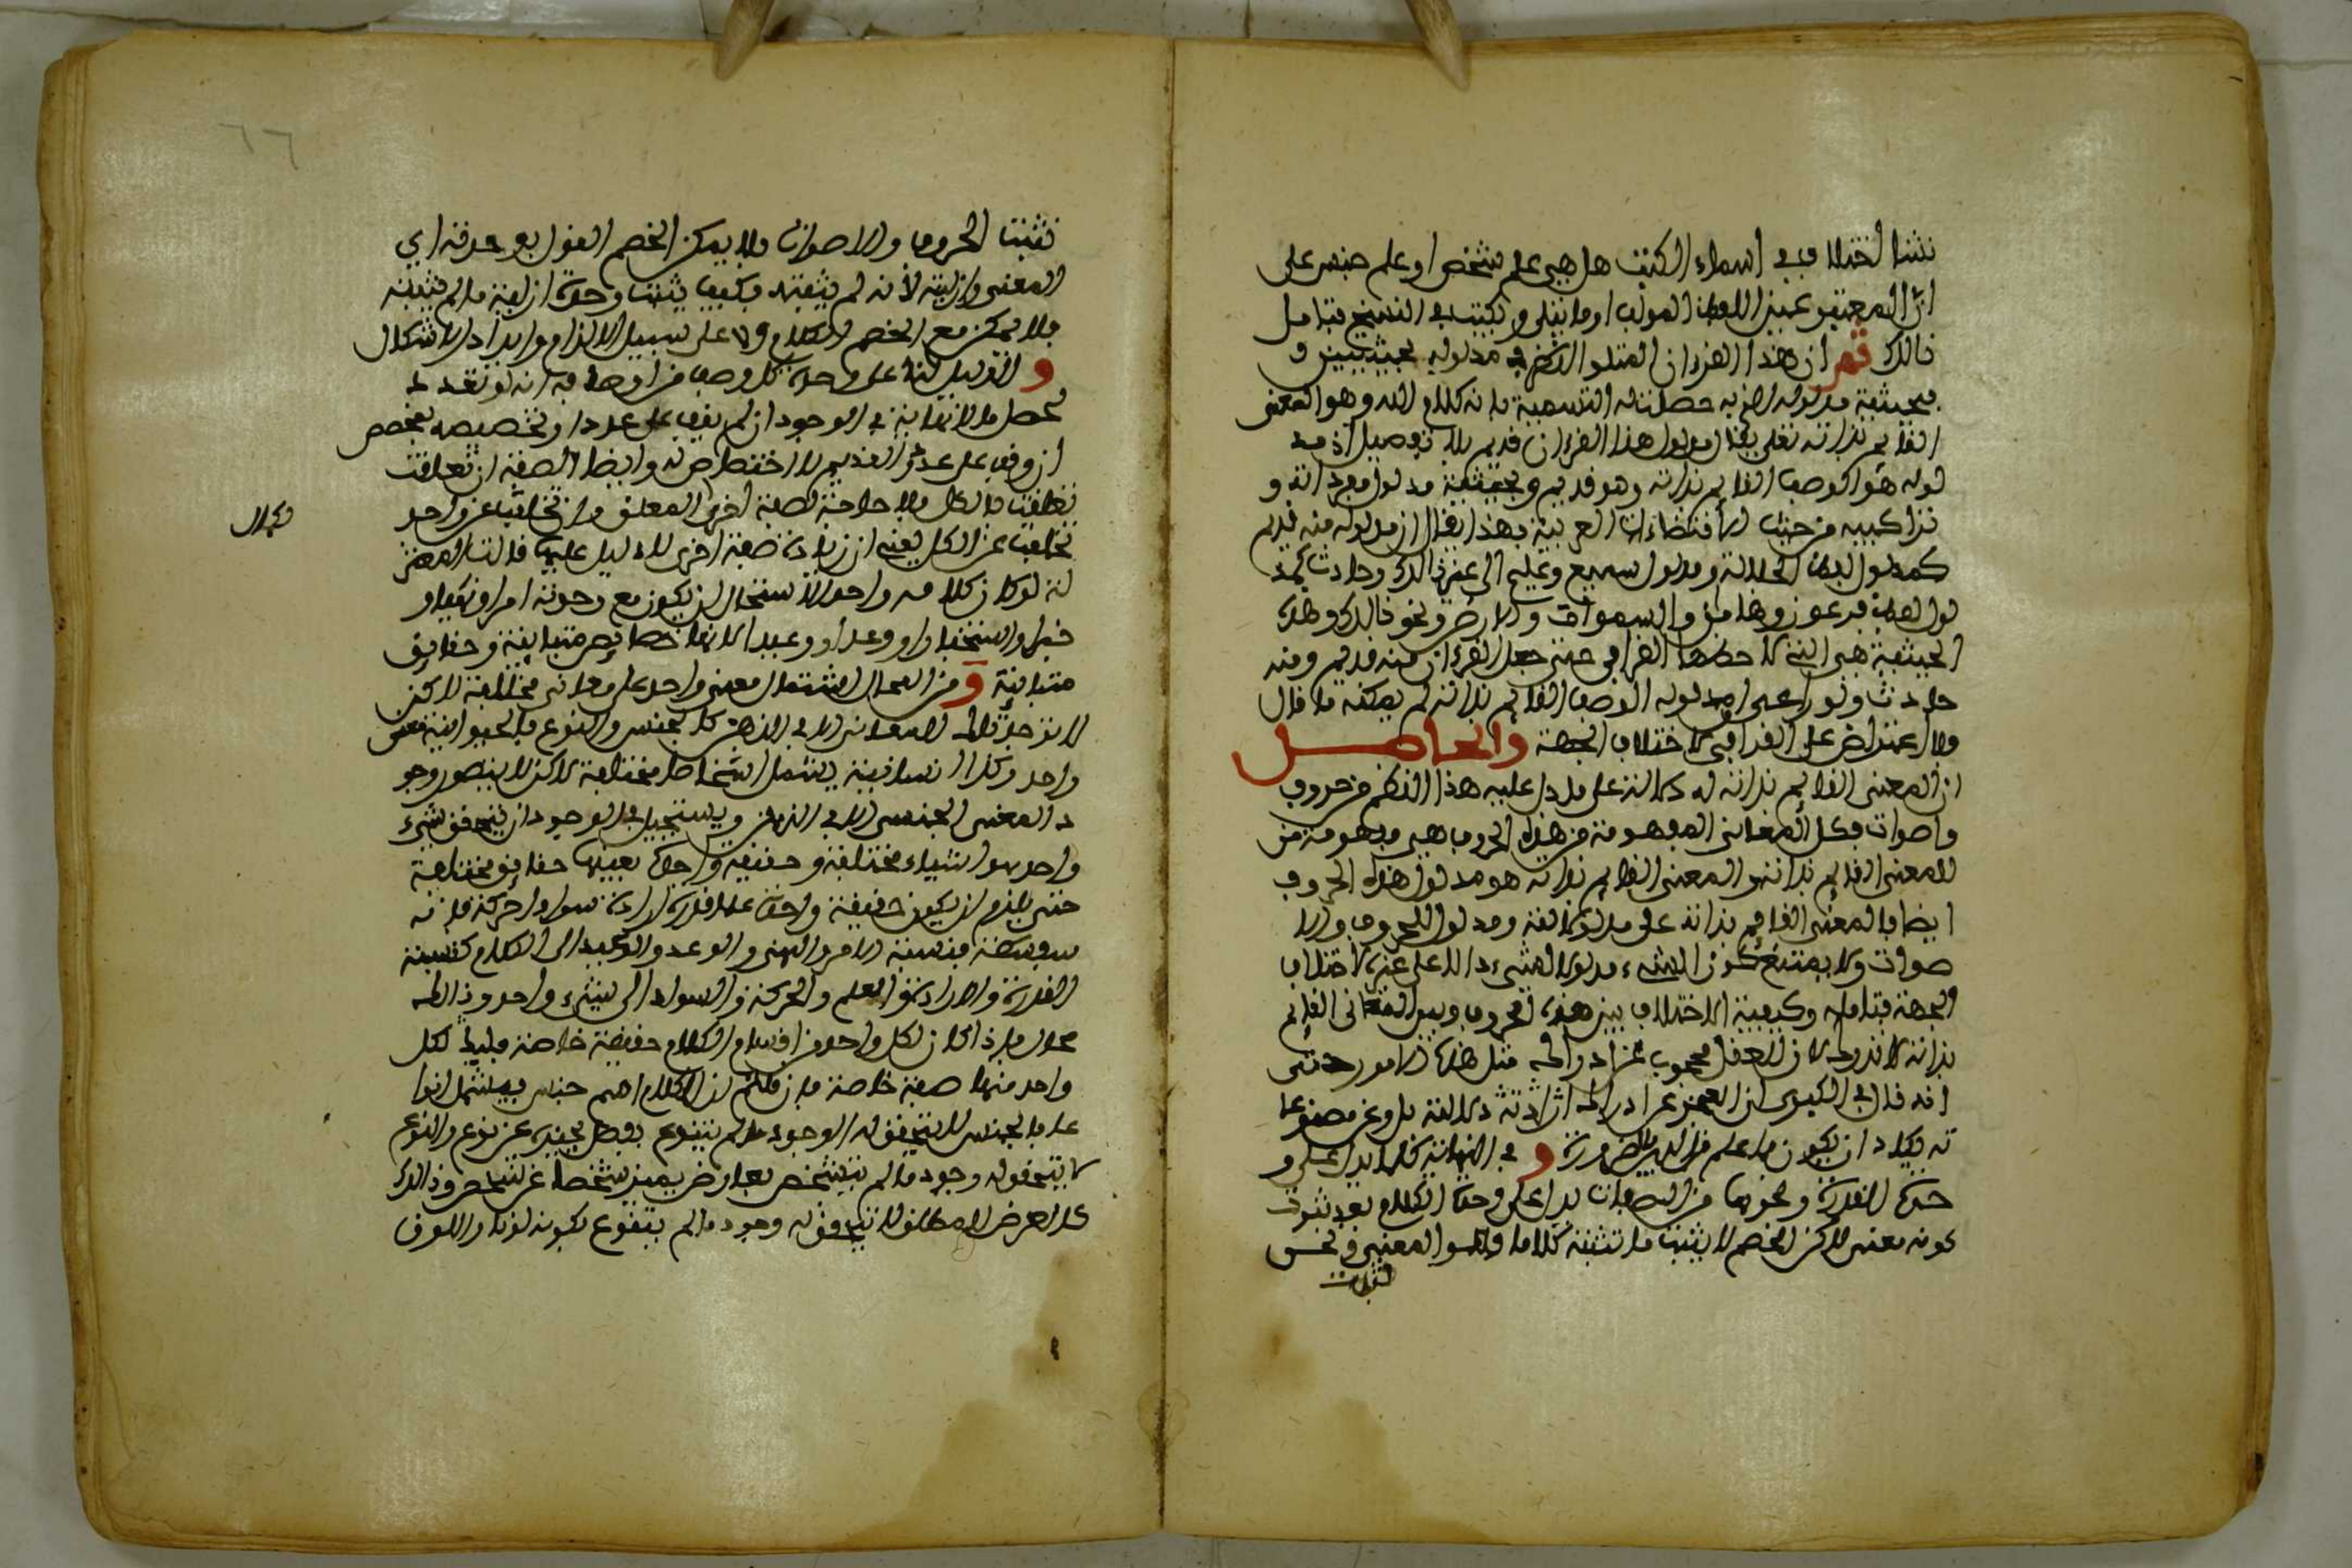 نشا اختلاف في اسماء الكتب هل هي علم شخص او علم جنس على
ان المعتبر عين اللفظ المولف او ما يتلى ويكتب في النسخ فتامل
ذالك ثم ان هذا القرءان المتلو الاكثر في مدلوله بحيثيتين و
بحيثية مدلوله له حصلت له التسمية بانه كلام الله وهو المعنى
القايم بذاته تعلى يقال مدلول هذا القرءان قديم بلا تفصيل اذ مد
لوله هو الوصف القايم بذاته وهو قديم وبحيثية مدلول مفرداته و
تراكيبه من حيث اقتضاءات العربية بهذا يقال ان مدلوله منه قديم
كمدلول لفظ الجلالة ومدلول سميع وعليم الى غير ذالك وحادث كمد
لول لفظ فرعون وهامان والسموات والارض ونحو ذالك وهذه
الحيثية هي التي لاحظها القرافي حتى جعل القرءان منه قديم ومنه
حادث ولو راعى مدلوله الوصف القايم بذاته لم يمكنه ما قال
ولا اعتراض على القرافي لاختلاف الجهة والحاصل
ان المعنى القايم بذاته له دلالة على ما دل عليه هذا النظم من حروف
واصوات فكل المعاني المفهومة من هذه الحروف هي مفهومة من
المعنى القايم بذاته والمعنى القايم بذاته هو مدلول هذه الحروف
ايضا فالمعنى القايم بذاته على مدلول لفته ومدلول للحروف والا
صوات ولا يمتنع كون الشيء مدلولا لشيء دالا على غيره لاختلاف
الجهة فتامله وكيفية الاختلاف بين هذه الحروف وبين المعاني القايم
بذاته لا ندركه لان العقل محجوب عن ادراك مثل هذه الامور حتى
انه قال في الكبرى ان العجز عن ادراك
ته يكاد ان يكون ما علم من الدين ضرورة و في النهاية كلما يدل على و
حدة القدرة ونحوها من الصفات يدل على وحدة الكلام بعد ثبوت
كونه معنى لاكن الخصم لا يثبت ما نثبته كلاما وهو المعنى ونحن
نثبت
نثبت الحروف والاصوات ولا يمكن الخصم القول بوحدته اي
المعنى وازليته لانه لم يثبته وكيف يثبت وحدة ازلية ما لم يثبته
فلا يمكن مع الخصم الكلام الا على سبيل الالزام وايراد الاشكال
و الدليل لنا على وحدة كل وصف من اوصافه انه لو تعدد
لحصل ما لا نهاية في الوجود ان لم يقف على عدد او تخصيصه بمخصص
ان وقف على عدد والقديم لا اختصاص له وايضا الصفة ان تعلقت
تعلقت بالكل ولا حاجة لصفة اخرى المتعلق وان تخلفت عن واحد
تخلفت عن الكل يعني ان زيادة صفة اخرى لا دليل عليها قالت المعتز
لة لو كان كلامه واحدا لاستحال ان يكون مع وحدته امرا ونهيا و
خبرا واستخبارا ووعدا ووعيدا لانها خصايص متباينة وحقايق
متباينة و من المحال اشتمال معنى واحد على معاني مختلفة لاكن
لا توجد تلك المعاني الا في الذهن كالجنس والنوع فالحيوانية معنى
واحد وكذا الانسانية يشمل اشخاصا مختلفة لاكن لا يتصور وجو
د المعنى الجنسي الا في الذهن ويستحيل في الوجود ان يتحقق شيء
واحد هو اشياء مختلفة وحقيقة واحدة بعينها حقايق مختلفة
حتى يلزم ان يكون حقيقة واحدة علما قدرة ارادة سوادا حركة فانه
سفسطة فنسبة الامر والنهي والوعد والوعيد الى الكلام كنسبة
القدرة والارادة والعلم والحركة والسواد الى شيء واحد وذالك
محال فاذا كان لكل واحد من اقسام الكلام حقيقة خاصة فليثبت لكل
واحد منها صفة خاصة فان قلتم ان الكلام اسم جنس يشمل انوا
عا فالجنس لا يتحقق له الوجود ما لم يتنوع بفصل يميزه عن نوع والنوع
لا يتحقق له وجود ما لم يتشخص بعارض يميز شخصا عن شخص وذالك
كالعرض المطلق لا يتحقق له وجود ما لم يتنوع بكونه لونا واللون